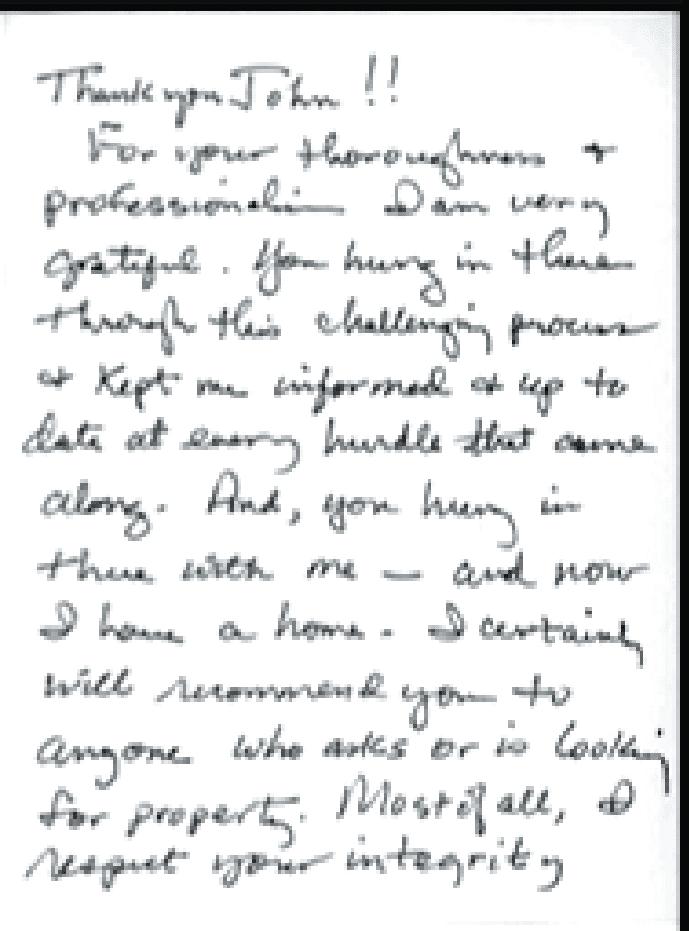 Thank you John !!
For your thoroughness +
professionalism I am very
grateful. You hung in there
through this challenging process
& kept me informed & up to
date at every hurdle that came
along. And, you hung in
there with me — and now
I have a home. I certainly
will recommend you to
anyone who asks or is looking
for property. Most of all, I
respect your integrity